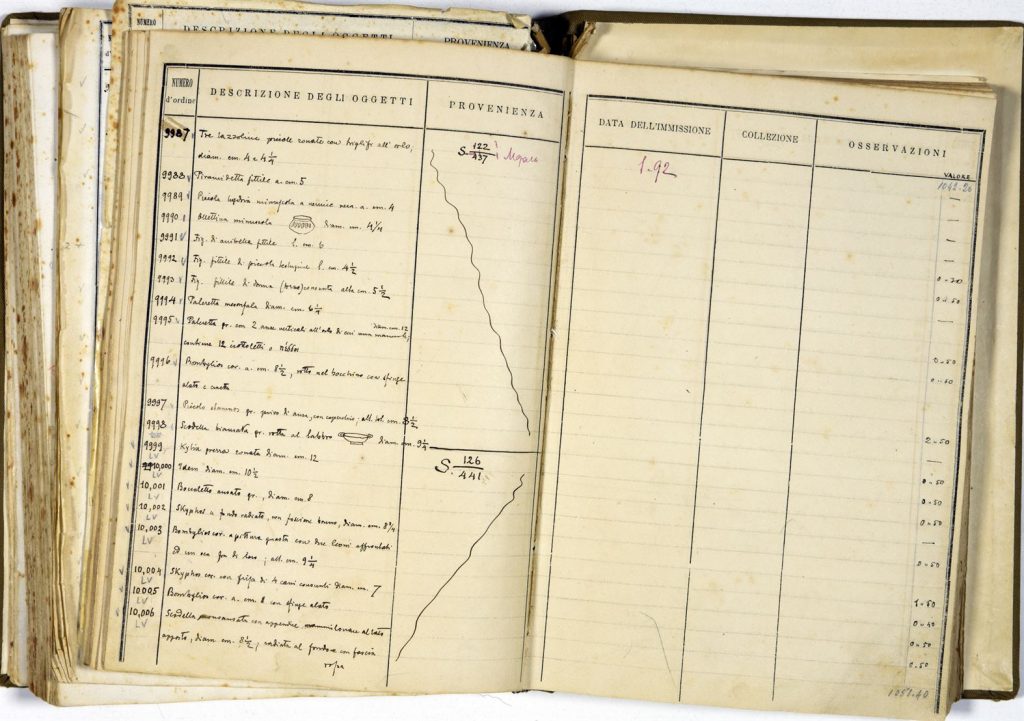 NUMERO
DESCRIZIONE DEGLI OGGETTI
PROVENIENZA
NUMERO d'ordine
DESCRIZIONE DEGLI OGGETTI
PROVENIENZA
9987 Tre tazzoline piccole ornate con triglifi all'orlo,
diam. cm 4 e 4 1/4
S. 122/437
9988 Piramidetta fittile a. cm. 5
9989 Piccola hydria minuscola a vernice nera. a. cm. 4
9990 Ollettina minuscola diam. cm. 4 1/4
9991 Fig. fittile l. cm. 6
9992 Fig. fittile di piccola l. cm. 4 1/2
9993 Fig. fittile di donna alta cm. 5 1/2
9994 Pateretta mesomfala diam. cm. 6 1/4
9995 Pateretta gr. con 2 anse verticali all'orlo di cui una mancante, diam. cm. 12
contiene 12 ciottoletti
9996 Bombylios cor. a. cm. 8 1/2, rotto nel bocchino con sfinge
alata e civetta
9997 Piccolo stamnos gr. privo di anse, con coperchio; alt. tot. cm. 8 1/2
9998 Scodella biansata gr. rotta al labbro diam. cm. 9 1/4
9999 Kylix diam. cm. 12
LV
S. 126/441
10,000 Idem diam. cm. 10 1/2
LV
10,001 Boccaletto ansato gr., diam. cm. 8
LV
10,002 Skyphos a fondo radiato, con fascione bruno, diam. cm. 8 3/4
LV
10,003 Bombylios cor. a pittura guasta con due leoni affrontati
LV
ed un oca fra di loro, alt. cm. 9 1/4
10,004 Skyphos cor. con fregio di 4 cani correnti diam. cm. 7
LV
10005 Bombylios cor. a. cm. 8 con sfinge alata
LV
10,006 Scodella monoansata con appendice al lato
LV
opposto, diam. cm. 8 1/2, radiata al fondo e con fascia
rossa
DATA DELL'IMMISSIONE
COLLEZIONE
OSSERVAZIONI
1.92
VALORE
1042.20
0.50
0.50
2.50
0.50
0.50
0.50
0.50
1.50
0.40
0.50
0.50
1051.40